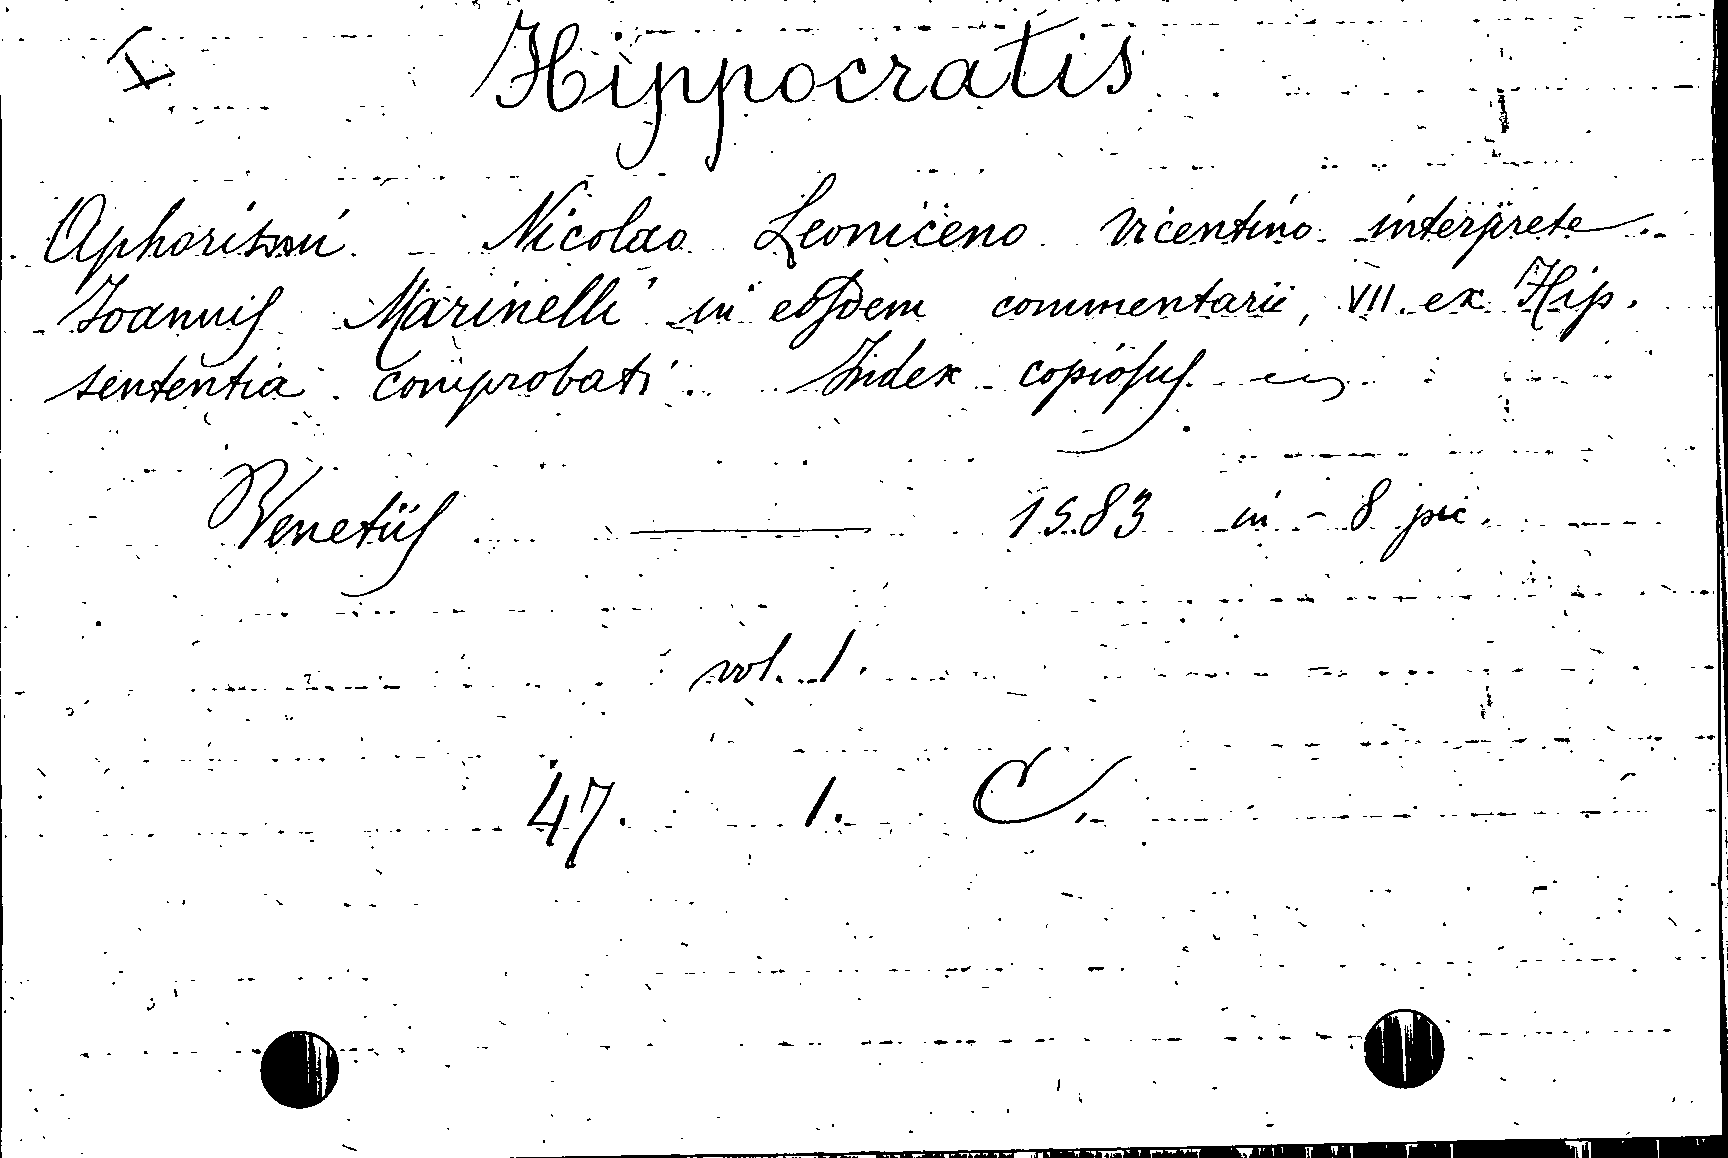 I Hippocratis
Aphorismi. Nicolao Leoniceno Vicentino interprete.
Joannis Marinelli in eosdem commentarii, VII ex Hip.
sententia comprobati. Index copiosus.
Venetiis — 1583 in-8 pic.
vol. 1.
47. 1. C.